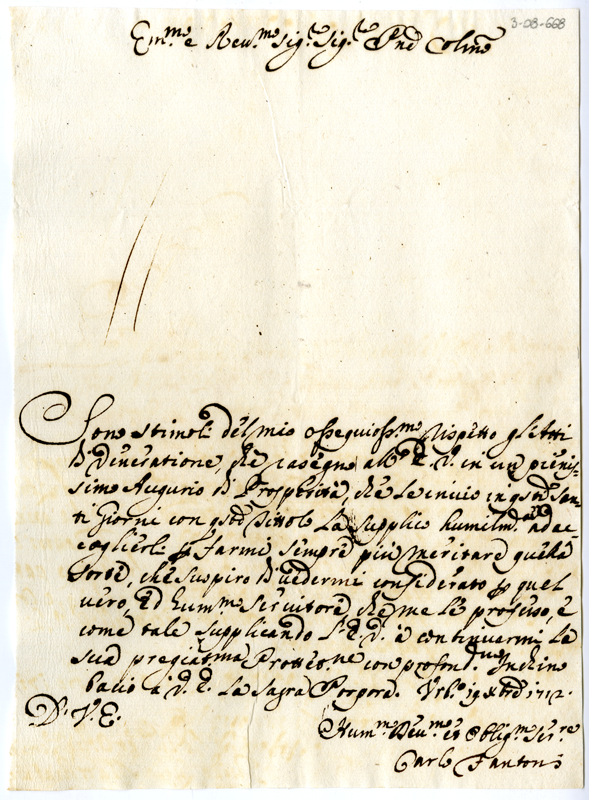 3-08-668
Em.mo e Reu.mo Sig.re Sig.re Pnd Colmo
Sono stimoli del mio ossequioss.mo rispetto gl'Atti
di Veneratione, che rasegno all' E. V. in un pienis-
simo Augurio di Prosperità, che Le inuio in qsti San-
ti Giorni con qsto La supplico humilm.te ad ac-
coglierli p farmi sempre più meritare quella
sorte, che suspiro di uedermi considerato p quel
uero, ed hum.mo seruitore, che me Le professo, e
come tale supplicando l'E. V. à continuarmi La
sua pregiat.ma Prottio.ne con profond. Inchino
bacio à V. E. La Sagra Porpora. Urb.o 19 Xbre 1712.
D. V. E.
Hum.mo Deu.mo et Oblig.mo Ser.re
Carlo Fantoni